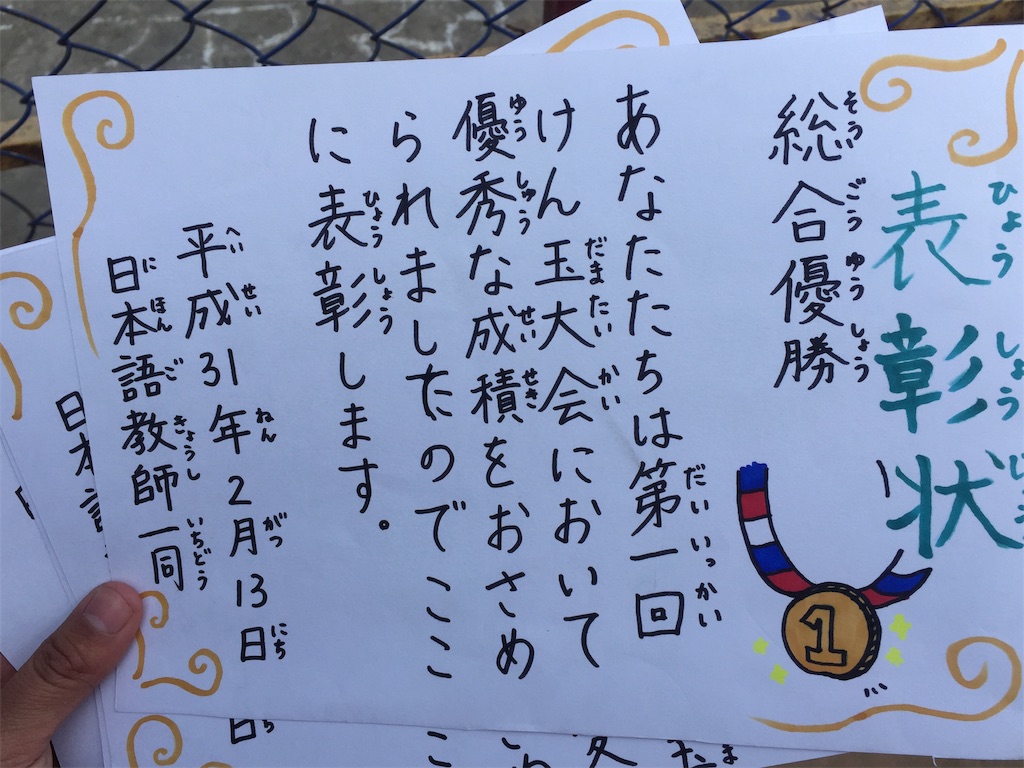 表彰状
総合優勝
あなたたちは第一回
けん玉大会において
優秀な成績をおさめ
られましたのでここ
に表彰します。
平成31年2月13日
日本語教師一同